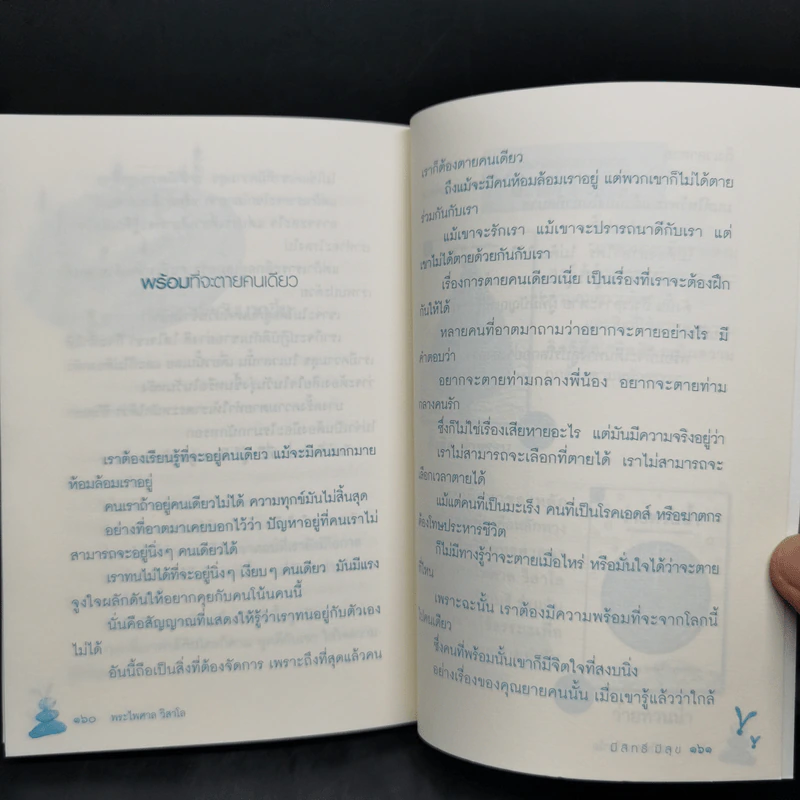 พร้อมที่จะตายคนเดียว
เราต้องเรียนรู้ที่จะอยู่คนเดียว แม้จะมีคนมากมาย
ห้อมล้อมเราอยู่
คนเราถ้าอยู่คนเดียวไม่ได้ ความทุกข์มันไม่สิ้นสุด
อย่างที่อาตมาเคยบอกไว้ว่า ปัญหาอยู่ที่คนเราไม่
สามารถจะอยู่นิ่งๆ คนเดียวได้
เราทนไม่ได้ที่จะอยู่นิ่งๆ เงียบๆ คนเดียว มันมีแรง
จูงใจผลักดันให้อยากคุยกับคนโน้นคนนี้
นั่นคือสัญญาณที่แสดงให้รู้ว่าเราทนอยู่กับตัวเอง
ไม่ได้
อันนี้ถือเป็นสิ่งที่ต้องจัดการ เพราะถึงที่สุดแล้วคน
๑๖๐ พระไพศาล วิสาโล
เราก็ต้องตายคนเดียว
ถึงแม้จะมีคนห้อมล้อมเราอยู่ แต่พวกเขาก็ไม่ได้ตาย
ร่วมกันกับเรา
แม้เขาจะรักเรา แม้เขาจะปรารถนาดีกับเรา แต่
เขาไม่ได้ตายด้วยกันกับเรา
เรื่องการตายคนเดียวเนี่ย เป็นเรื่องที่เราจะต้องฝึก
กันให้ได้
หลายคนที่อาตมาถามว่าอยากจะตายอย่างไร มี
คำตอบว่า
อยากจะตายท่ามกลางพี่น้อง อยากจะตายท่าม
กลางคนรัก
ซึ่งก็ไม่ใช่เรื่องเสียหายอะไร แต่มันมีความจริงอยู่ว่า
เราไม่สามารถจะเลือกที่ตายได้ เราไม่สามารถจะ
เลือกเวลาตายได้
แม้แต่คนที่เป็นมะเร็ง คนที่เป็นโรคเอดส์ หรือฆาตกร
ต้องโทษประหารชีวิต
ก็ไม่มีทางรู้ว่าจะตายเมื่อไหร่ หรือมั่นใจได้ว่าจะตาย
ที่ไหน
เพราะฉะนั้น เราต้องมีความพร้อมที่จะจากโลกนี้
ไปคนเดียว
ซึ่งคนที่พร้อมนั้นเขาก็มีจิตใจที่สงบนิ่ง
อย่างเรื่องของคุณยายคนนั้น เมื่อเขารู้แล้วว่าใกล้
มีสิทธิ์ มีสุข ๑๖๑